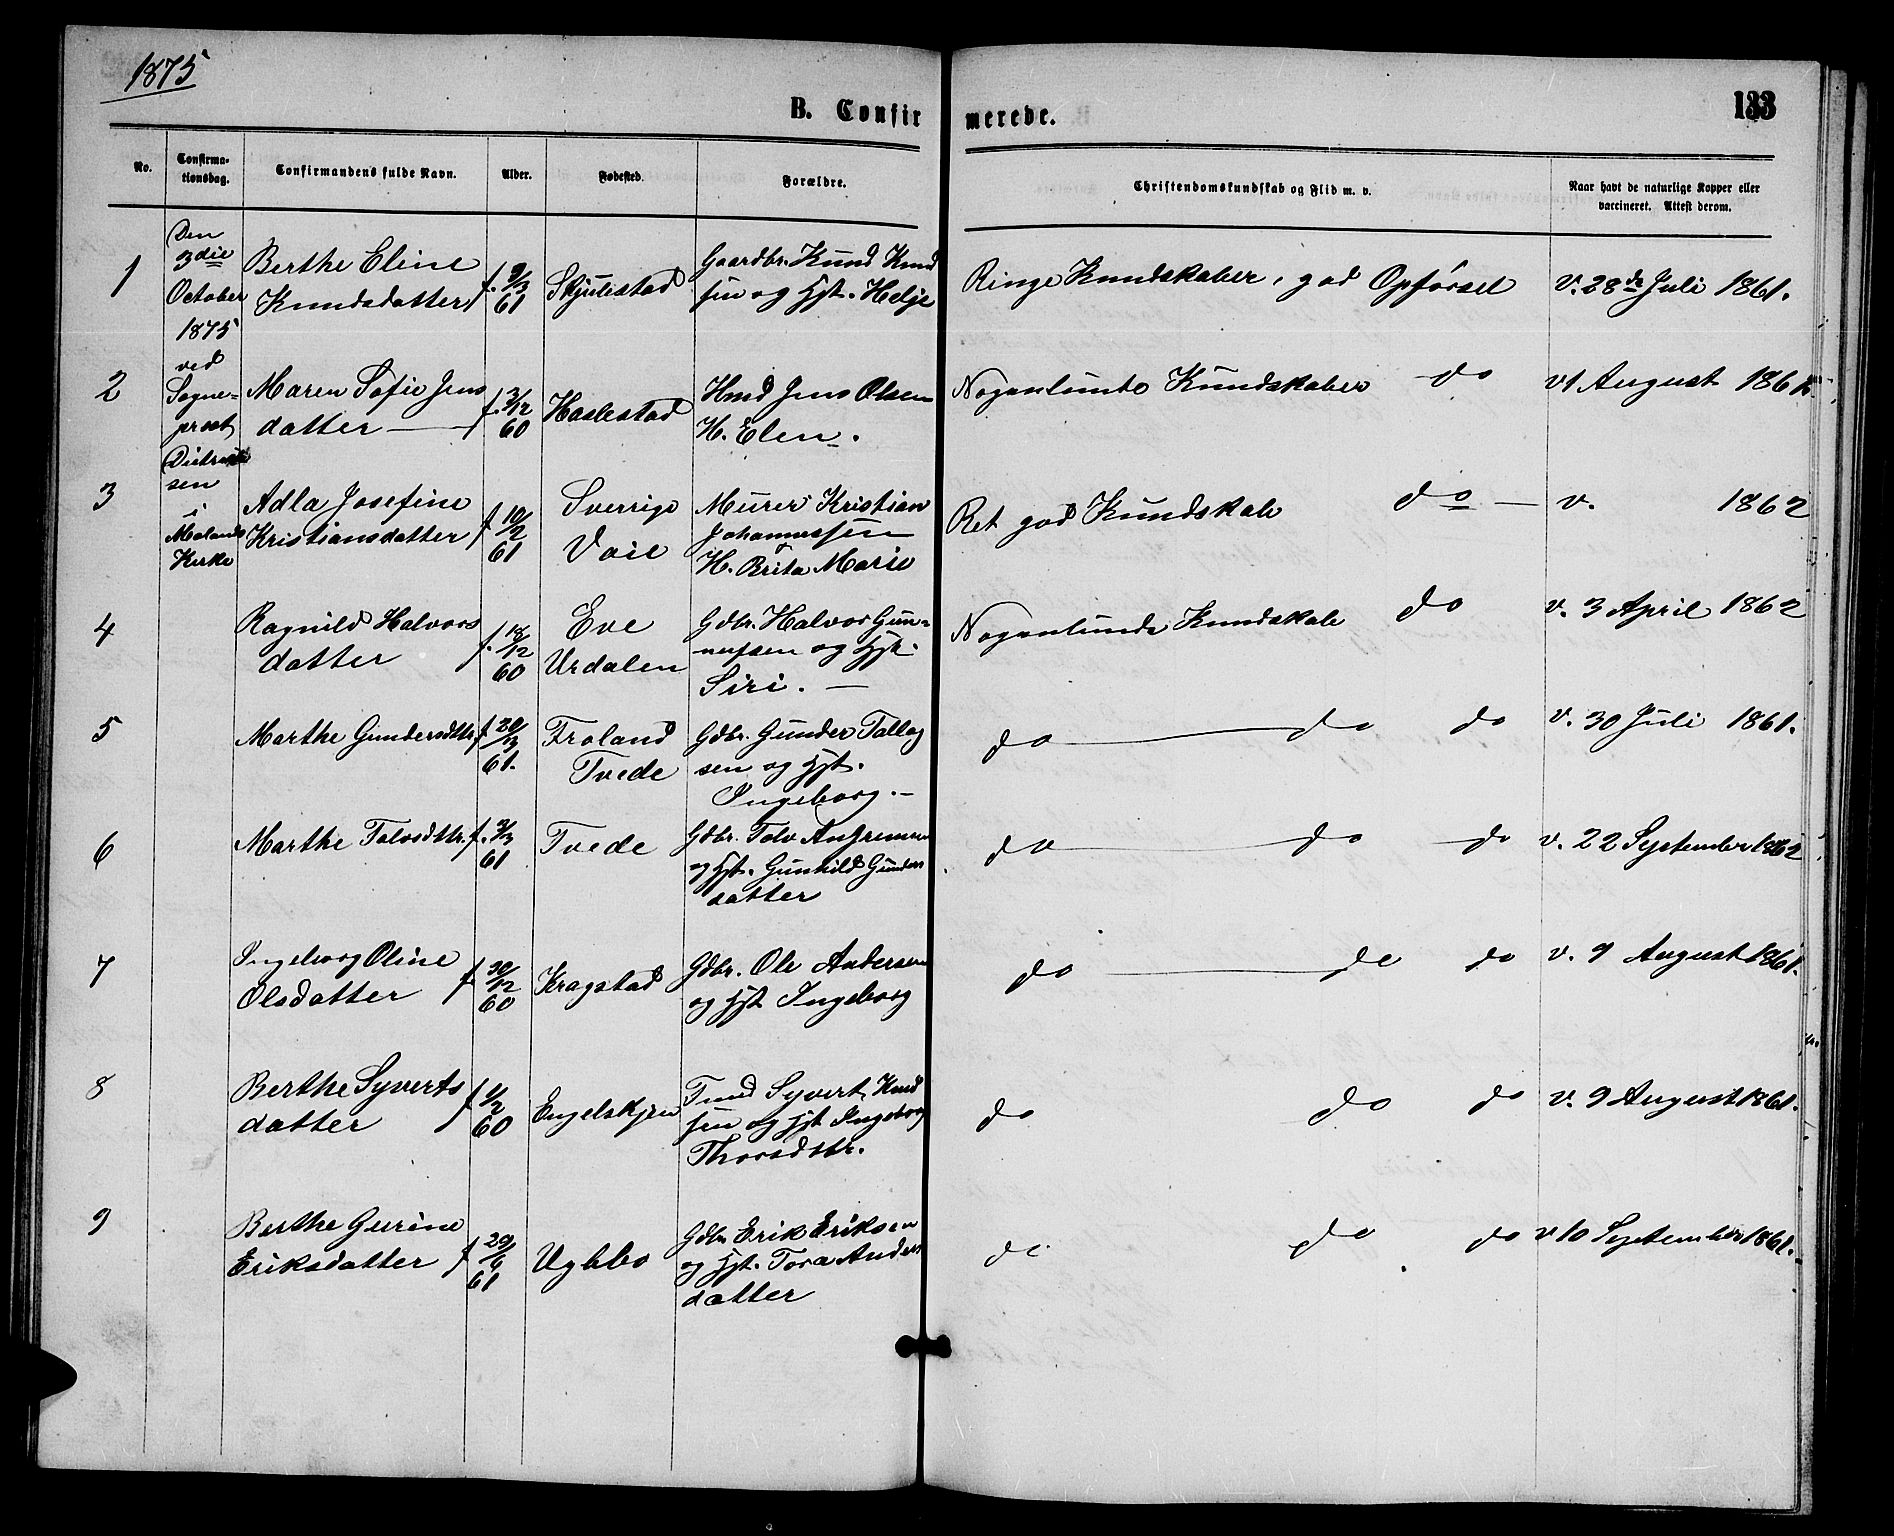 1875
B. Confirmerede.
133
No.
Confirma-
tionsdag.
Confirmandens fulde Navn.
Alder.
Fødested.
Forældre.
Christendomskundskab og Flid m. v.
Naar havt de naturlige Kopper eller
vaccineret. Attest derom.
Den
3die
October
1875
ved
Sogne-
prest
sen
i
Molands
Kirke
1
Berthe Eline
Knudsdatter
f. 9/3
61
Skjulestad
Gaardbr. Knud Knud
sen og Hst. Helje
Ringe Kundskaber, god Opførsel
v. 28de Juli 1861.
2
Maren Sofie Jens
datter
f. 3/12
60
Haslestad
Hmd Jens Olsen
H. Elen.
Nogenlunde Kundskaber do
v 1 August
3
Adla Josefine
Kristiansdatter
f. 10/2
61
Sverrige
Vaie
Murer Kristian
Johannessen
H. Brita Marie
Ret god Kundskab do
v. 1862
4
Ragnild Halvors
datter
f. 18/12
60
Eve
Urdalen
Gdbr. Halvor Gun-
nufsen og Hst.
Siri.
Nogenlunde Kundskab do
v. 3 April 1862
5
Marthe Gundersdtr.
f 20/3
61.
Froland
Tvede
Gdbr. Gunder Tallag
sen og Hst.
Ingeborg.
do do do
v. 30 Juli 1861.
6
Marthe Talvsdttr.
f. 9/3
61
Tvede
Gdbr. Talv
og Hst. Gunhild Gunders
datter
do do do
v. 22 September 1862
7
Ingeborg Oline
Olsdatter
f 30/12
60
Kragstad
Gdbr. Ole Andersen
og Hst Ingeborg
do do do
v. 9 August 1861.
8
Berthe Syverts
datter
f 1/2
60
Engelskjøn
Syvert Knud
sen og Hst Ingeborg
Thorsdstr.
do do do
v. 9 August 1861.
9
Berthe Gurine
Eriksdatter
f 29/6
61
Uglebo
Gdbr Erik Eriksen
og Hst. Tora Anders
datter
do do do
v 10 September 1861.